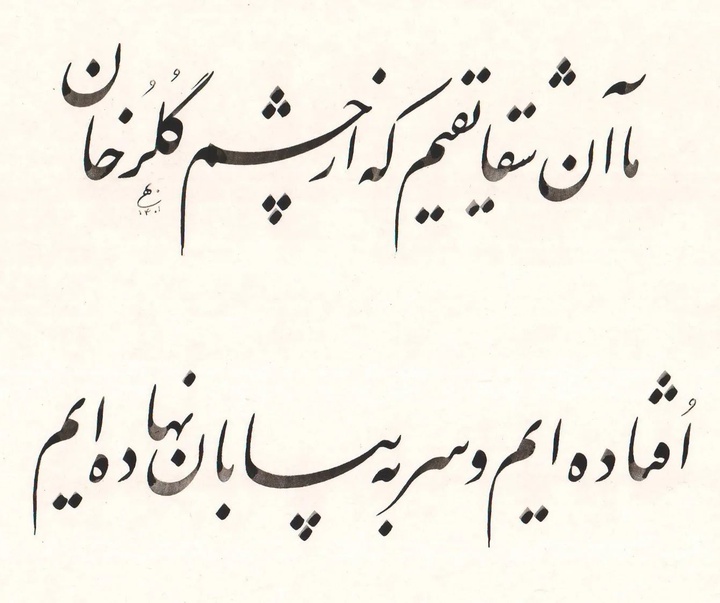 ما آن شقایقیم که از چشم گُلرُخان
اُفتاده ایم و سر به بیابان نهاده ایم
۱۴۰۱